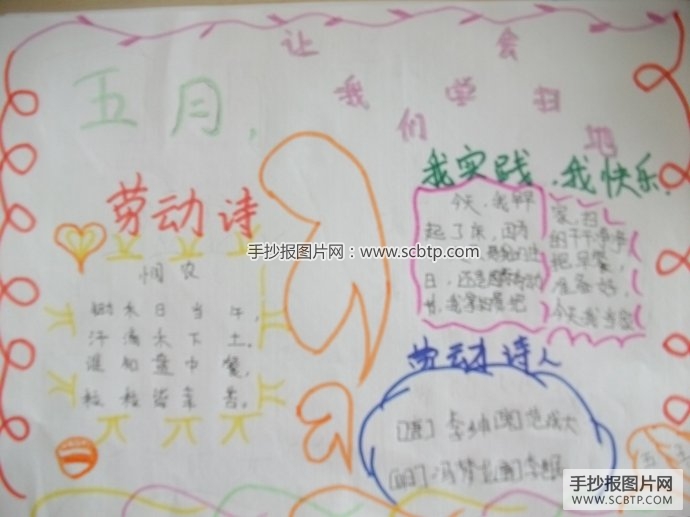 五月,
让我们学会扫地
我实践,我快乐.
劳动诗
悯农
锄禾日当午,
汗滴禾下土.
谁知盘中餐,
粒粒皆辛苦.
今天,我早
起了床,因为
日,还是劳动
家,扫
的干干净净
把早餐,
准备好,
今天我当家
劳动诗人
[唐] 李绅 [宋]范成大
[明]冯梦龙
五
手抄报图片网:www.scbtp.com
手抄报图片网
WWW.SCBTP.COM